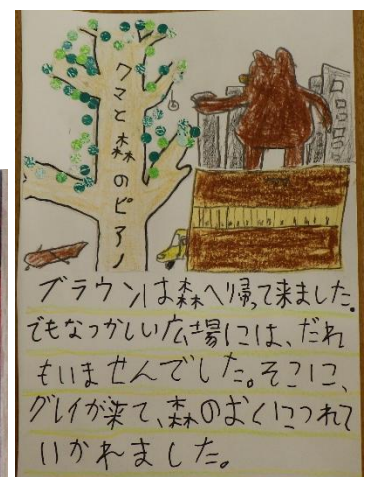 クマと森のピアノ
ブラウンは森へ帰って来ました。
でもなつかしい広場には、だれ
もいませんでした。そこに、
グレイが来て、森のおくにつれて
いかれました。